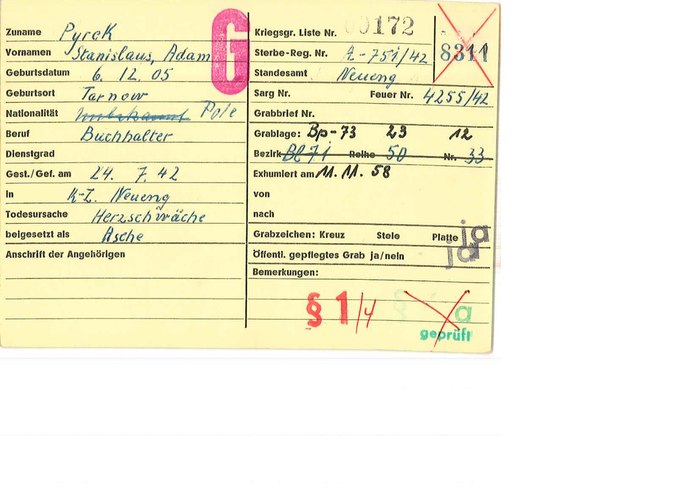 Zuname Pyrek
Vornamen Stanislaus, Adam
Geburtsdatum 6. 12. 05
Geburtsort Tarnow
Nationalität Unbekannt Pole
Beruf Buchhalter
Dienstgrad
Gest./Gef. am 24. 7. 42
in K-Z. Neueng
Todesursache Herzschwäche
beigesetzt als Asche
Anschrift der Angehörigen
G
Kriegsgr. Liste Nr. 00172
Sterbe-Reg. Nr. A-751/42 8311
Standesamt Neueng
Sarg Nr. Feuer Nr. 4255/42
Grabbrief Nr.
Grablage: Bp-73 23 12
Bezirk Bl 71 Reihe 50 Nr. 33
Exhumiert am 11. 11. 58
von
nach
Grabzeichen: Kreuz Stele Platte ja
Öffentl. gepflegtes Grab ja/nein ja
Bemerkungen:
§ 1/4
geprüft